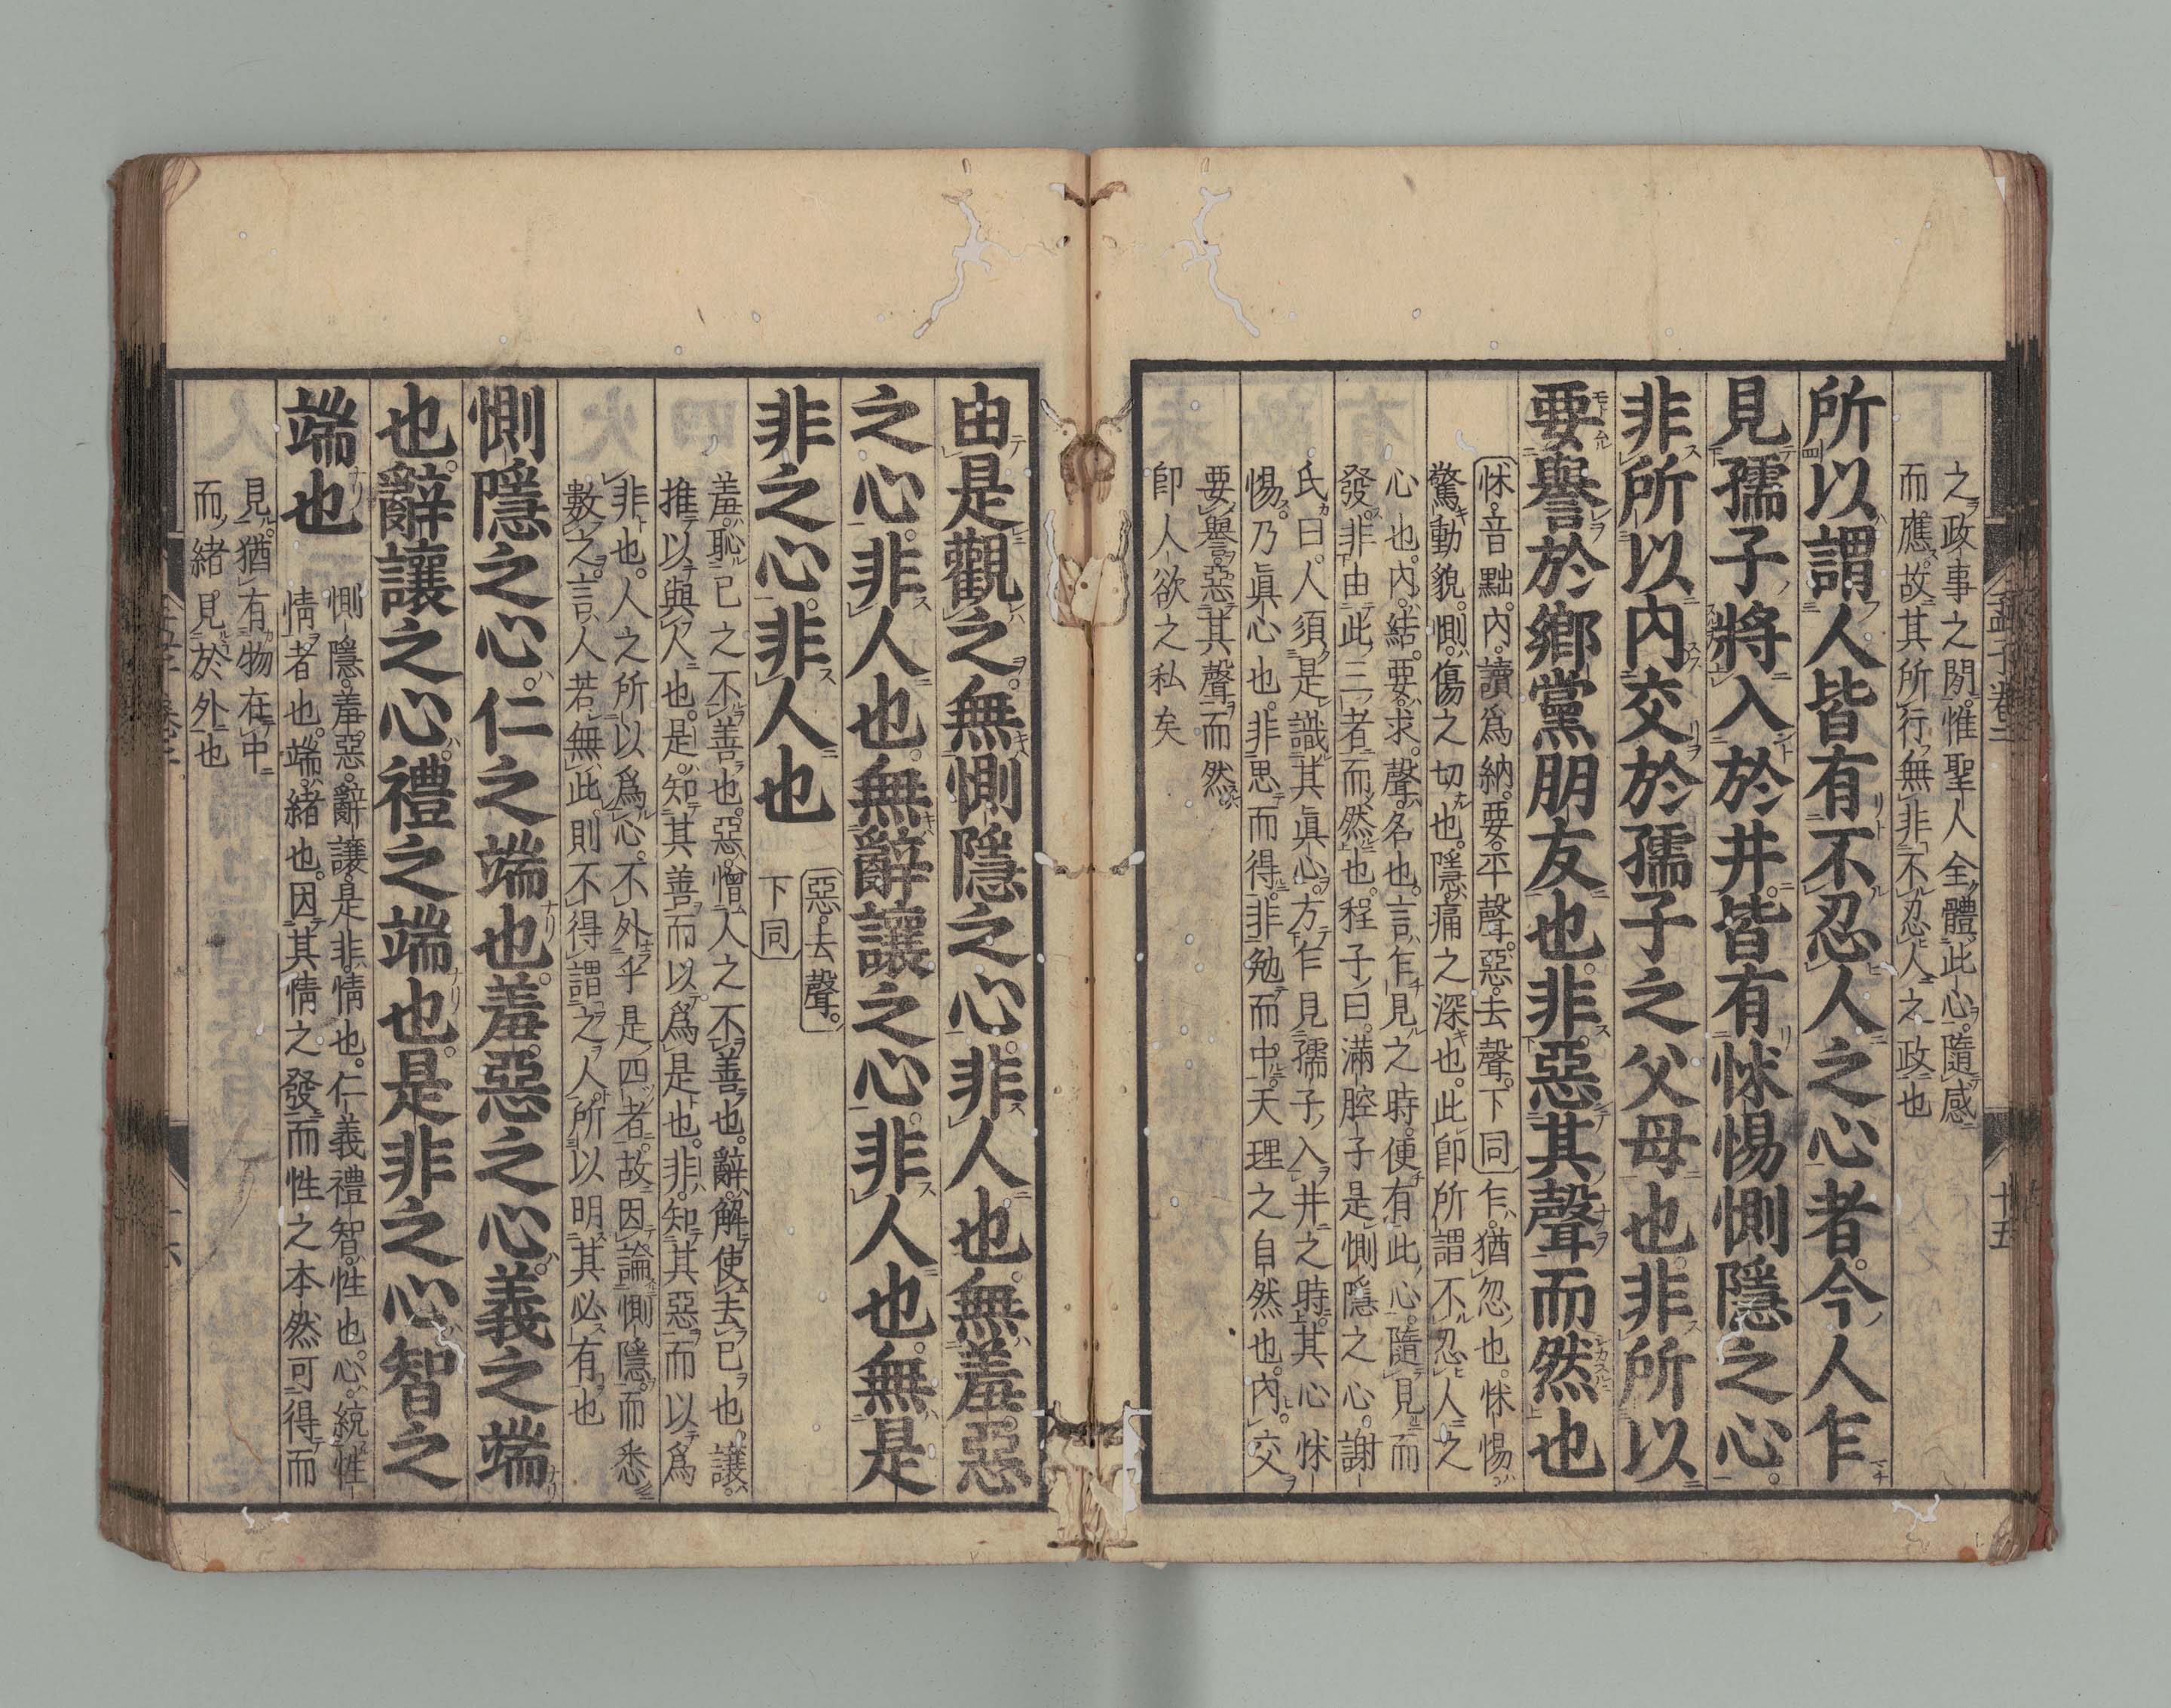 之政事之間惟聖人全體此心隨感
而應故其所行無非不忍人之政也
所以謂人皆有不忍人之心者今人乍
見孺子將入於井皆有怵惕惻隱之心
非所以内交於孺子之父母也非所以
要譽於鄉黨朋友也非惡其聲而然也
怵音黜内讀爲納要平聲惡去聲下同 乍猶忽也怵惕
驚動貌惻傷之切也隱痛之深也此即所謂不忍人之
心也内結要求聲名也言乍見之時便有此心隨見而
發非由此三者而然也程子曰滿腔子是惻隱之心謝
氏曰人須是識其眞心方乍見孺子入井之時其心怵
惕乃眞心也非思而得非勉而中天理之自然也内交
要譽惡其聲而然
即人欲之私矣
孟子卷二
十五
由是觀之無惻隱之心非人也無羞惡
之心非人也無辭讓之心非人也無是
非之心非人也
惡去聲
下同
羞恥己之不善也惡憎人之不善也辭解使去己也讓
推以與人也是知其善而以爲是也非知其惡而以爲
非也人之所以爲心不外乎是四者故因論惻隱而悉
數之言人若無此則不得謂之人所以明其必有也
惻隱之心仁之端也羞惡之心義之端
也辭讓之心禮之端也是非之心智之
端也
惻隱羞惡辭讓是非情也仁義禮智性也心統性
情者也端緒也因其情之發而性之本然可得而
見猶有物在中
而緒見於外也